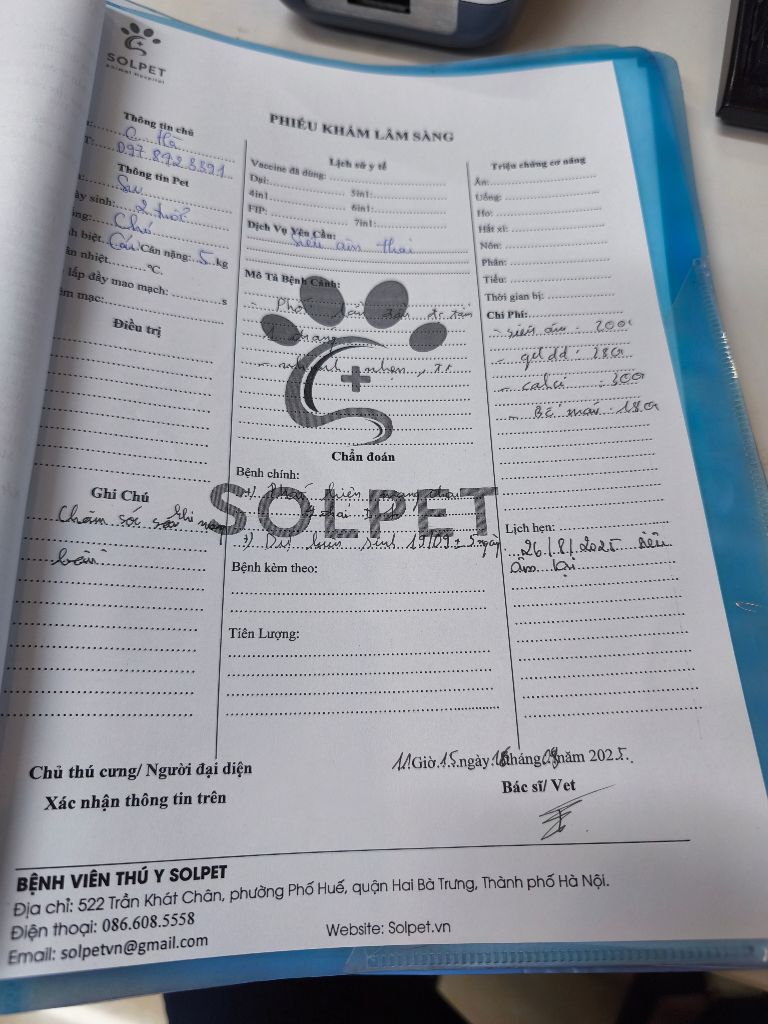 SOLPET
Animal Hospital
PHIẾU KHÁM LÂM SÀNG
Thông tin chủ
C Hà
097 892 3391
Thông tin Pet
Sau
ày sinh: 2 tuổi
ống: Chó
h biệt: Cái Cân nặng: 5 kg
ân nhiệt ℃.
lấp đầy mao mạch: s
êm mạc:
Điều trị
Ghi Chú
Chăm sóc sau khi mang
bầu
Lịch sử y tế
Vaccine đã dùng:
Dại: 5in1:
4in1 6in1:
FIP: 7in1:
Dịch Vụ Yêu Cầu:
Siêu âm thai
Mô Tả Bệnh Cảnh:
Chẩn đoán
Bệnh chính:
1) Phát hiện mang thai
2) Dự kiến sinh 19/09 ± 5 ngày
Bệnh kèm theo:
Tiên Lượng:
Triệu chứng cơ năng
Ăn:
Uống:
Ho:
Hắt xì:
Nôn:
Phân:
Tiểu:
Thời gian bị:
Chi Phí:
- siêu âm : 200k
- gel dd : 280k
- calci : 300k
Lịch hẹn:
26/8/2025 siêu
âm lại
11 Giờ 15 ngày 18 tháng 08 năm 2025.
Chủ thú cưng/ Người đại diện
Xác nhận thông tin trên
Bác sĩ/ Vet
BỆNH VIỆN THÚ Y SOLPET
Địa chỉ: 522 Trần Khát Chân, phường Phố Huế, quận Hai Bà Trưng, Thành phố Hà Nội.
Điện thoại: 086.608.5558
Email: solpetvn@gmail.com
Website: Solpet.vn
SOLPET